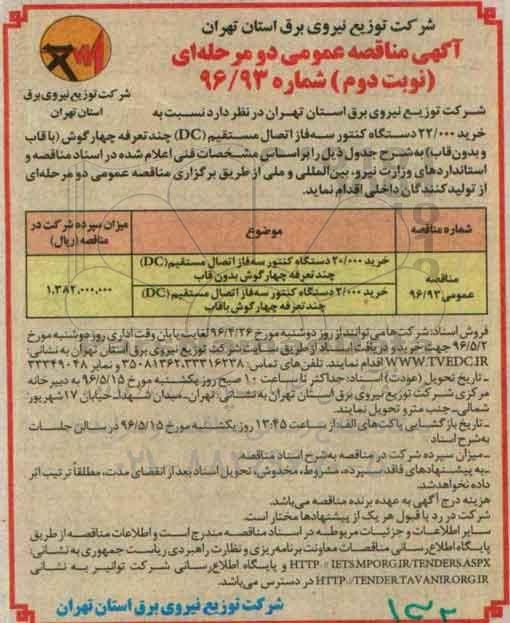 شرکت توزیع نیروی برق استان تهران
آگهی مناقصه عمومی دو مرحله‌ای
(نوبت دوم) شماره ۹۶/۹۳
شرکت توزیع نیروی برق
استان تهران
شرکت توزیع نیروی برق استان تهران در نظر دارد نسبت به
خرید ۲۲/۰۰۰ دستگاه کنتور سه‌فاز اتصال مستقیم (DC) چند تعرفه چهارگوش (با قاب
و بدون قاب) به شرح جدول ذیل را بر اساس مشخصات فنی اعلام شده در اسناد مناقصه و
استانداردهای وزارت نیرو، بین‌المللی و ملی از طریق برگزاری مناقصه عمومی دو مرحله‌ای
از تولیدکنندگان داخلی اقدام نماید.
شماره مناقصه
موضوع
میزان سپرده شرکت در
مناقصه (ریال)
مناقصه
عمومی ۹۶/۹۳
خرید ۲۰/۰۰۰ دستگاه کنتور سه‌فاز اتصال مستقیم (DC)
چند تعرفه چهارگوش بدون قاب
خرید ۲/۰۰۰ دستگاه کنتور سه‌فاز اتصال مستقیم (DC)
چند تعرفه چهارگوش با قاب
۱,۳۸۲,۰۰۰,۰۰۰
فروش اسناد: شرکت‌ها می‌توانند از روز دوشنبه مورخ ۹۶/۴/۲۶ لغایت پایان وقت اداری روز دوشنبه مورخ
۹۶/۵/۲ جهت خرید و دریافت اسناد از طریق سایت شرکت توزیع نیروی برق استان تهران به نشانی:
WWW.TVEDC.IR اقدام نمایند. تلفن های تماس: ۳۳۳۱۶۲۳۸-۳۵۰۸۱۳۶۲ و نمابر ۳۳۳۴۹۰۴۸
ـ تاریخ تحویل (عودت) اسناد: حداکثر تا ساعت ۱۰ صبح روز یکشنبه مورخ ۹۶/۵/۱۵ به دبیرخانه
مرکزی شرکت توزیع نیروی برق استان تهران به نشانی: تهران ـ میدان شهدا ـ خیابان ۱۷ شهریور
شمالی ـ جنب مترو تحویل نمایند.
ـ تاریخ بازگشایی پاکت‌های الف: از ساعت ۱۳:۴۵ روز یکشنبه مورخ ۹۶/۵/۱۵ در سالن جلسات
به شرح اسناد
ـ میزان سپرده شرکت در مناقصه به شرح اسناد مناقصه
ـ به پیشنهادهای فاقد سپرده، مشروط، مخدوش، تحویل اسناد بعد از انقضای مدت، مطلقاً ترتیب اثر
داده نخواهد شد.
هزینه درج آگهی به عهده برنده مناقصه می‌باشد.
شرکت در رد یا قبول هر یک از پیشنهادها مختار است.
سایر اطلاعات و جزئیات مربوطه در اسناد مناقصه مندرج است و اطلاعات مناقصه از طریق
پایگاه اطلاع‌رسانی مناقصات معاونت برنامه‌ریزی و نظارت راهبردی ریاست جمهوری به نشانی:
HTTP://IETS.MPORG.IR/TENDERS.ASPX و پایگاه اطلاع‌رسانی شرکت توانیر به نشانی
HTTP://TENDER.TAVANIR.ORG.IR در دسترس می‌باشد.
شرکت توزیع نیروی برق استان تهران